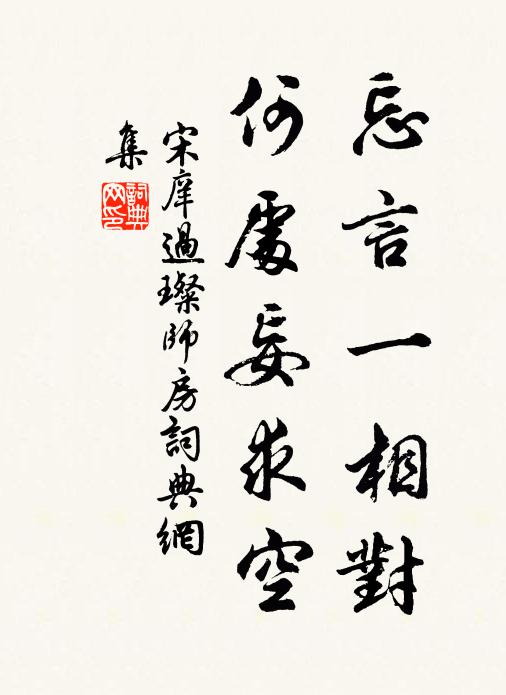 忘言一相對
何處妄求空
宋庠過璨師房詞典網
集
詞典網印